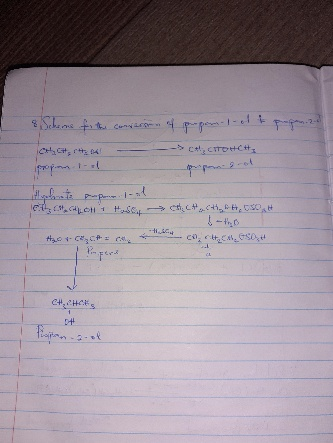 8. Scheme for the conversion of propan-1-ol to propan-2-ol
CH3CH2CH2OH → CH3CHOHCH3
propan-1-ol propan-2-ol
propan-1-ol
CH3CH2CH2OH + H2SO4 → CH3CH2CH2
↓ -H2O
H2O + CH3CH = CH2 ← -H2SO4
Propene
CH3CHCH3
OH
Propan-2-ol